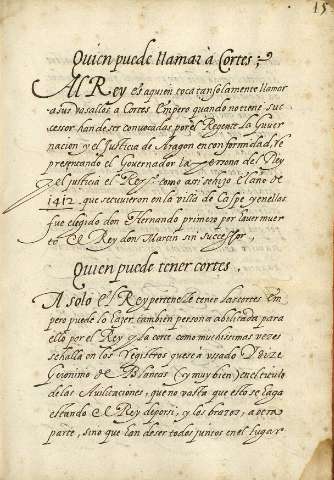 15
Quien puede llamar à Cortes
Al Rey es a quien toca tansolamente llamar
a sus vasallos a Cortes. Empero quando no tiene suc
cessor han de ser convocadas por el Regente la Gover
nacion y el Justicia de Aragon en conformidad, re
presentando el Governador la persona del Rey
y el justicia el Reyº como asi se hizo el año de
1412. que se tuvieron en la villa de Caspe y en ellas
fue elegido don Hernando primero por haver muer
to el Rey don Martin sin successor,
Quien puede tener cortes.
A solo el Rey pertenesce tener las cortes Em
pero puede lo hazer tambien persona abilitada para
ello por el Rey y la corte como muchissimas vezes
se halla en los Registros que se a usado Dize
Geronimo de Blancas (y muy bien) en el titulo
de las Avilitaciones, que no vasta que esto se haga
estando el Rey de por si, y los brazos, a otra
parte, sino que han de ser todos juntos en el lugar